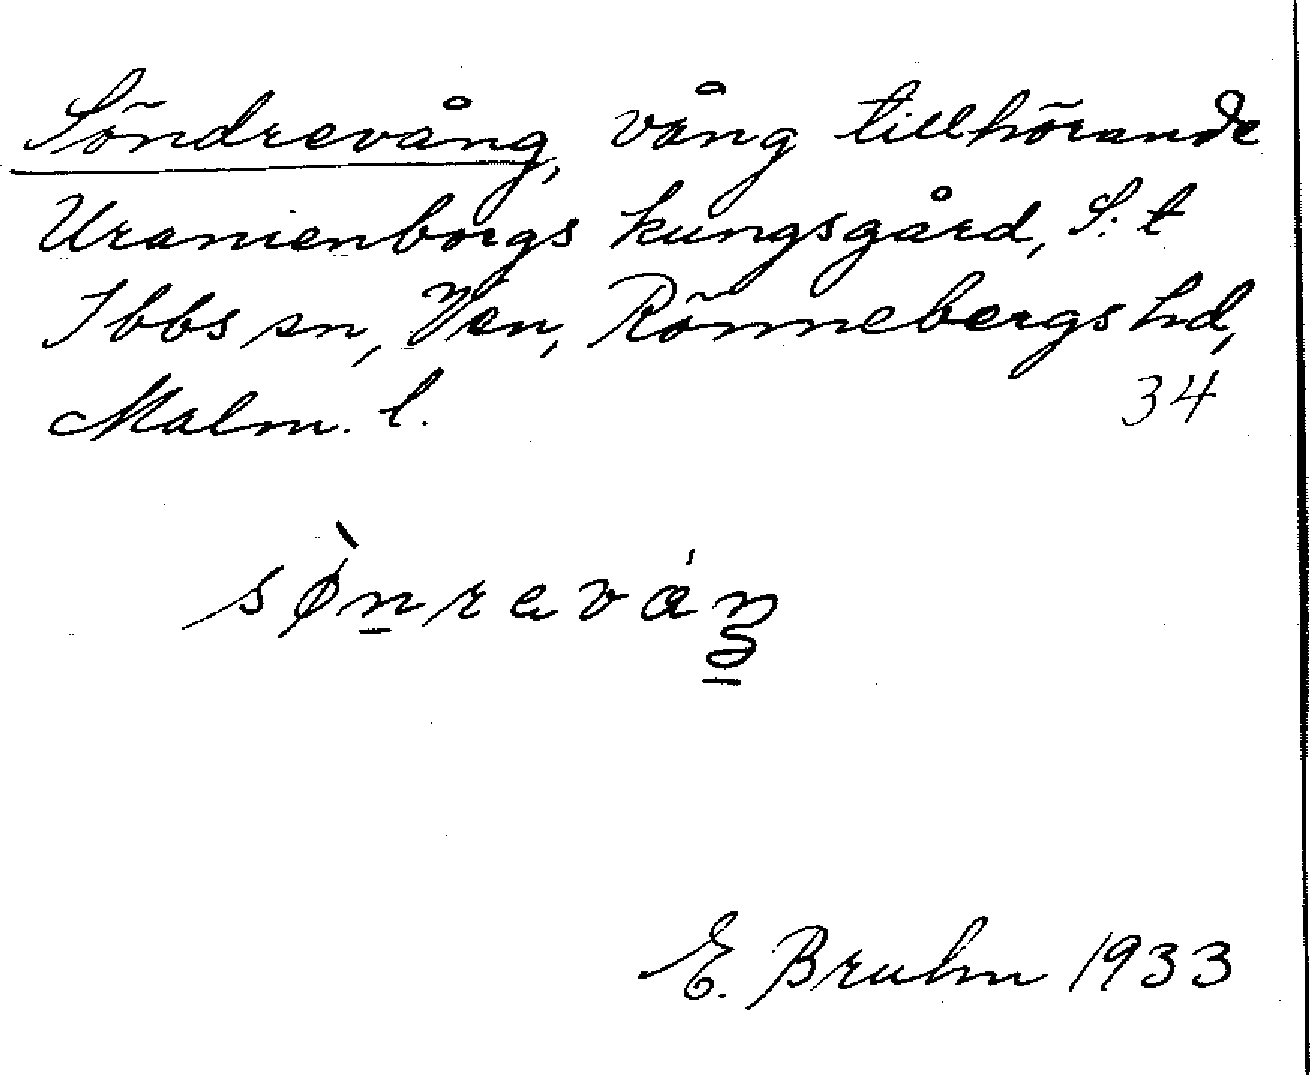 Söndrevång, vång tillhörande
Uranienborgs kungsgård, S:t
Ibbs sn, Ven, Rönnebergs hd,
Malm. l. 34
sø̀nraváŋ
E. Bruhn 1933